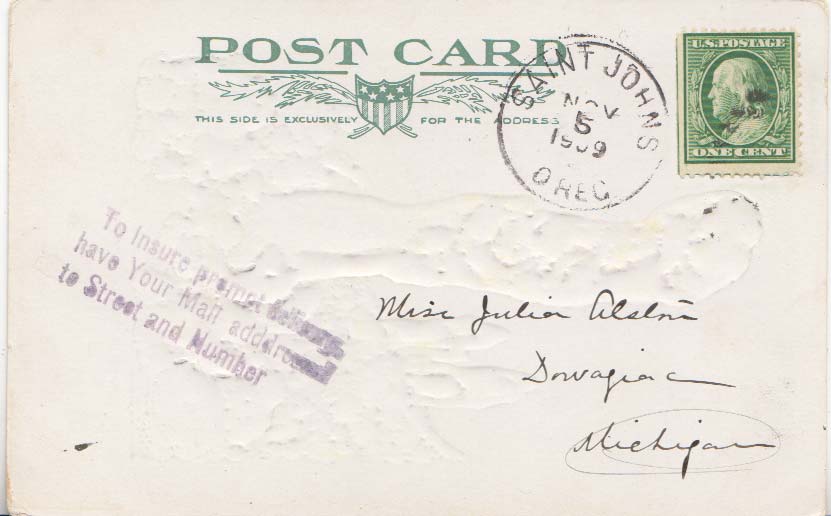 POST CARD
THIS SIDE IS EXCLUSIVELY FOR THE ADDRESS
SAINT JOHNS
NOV
5
1909
OREG
U.S. POSTAGE
ONE CENT
To Insure prompt
have Your Mail
to Street and Number
Miss Julia Alston
Dowagiac
Michigan